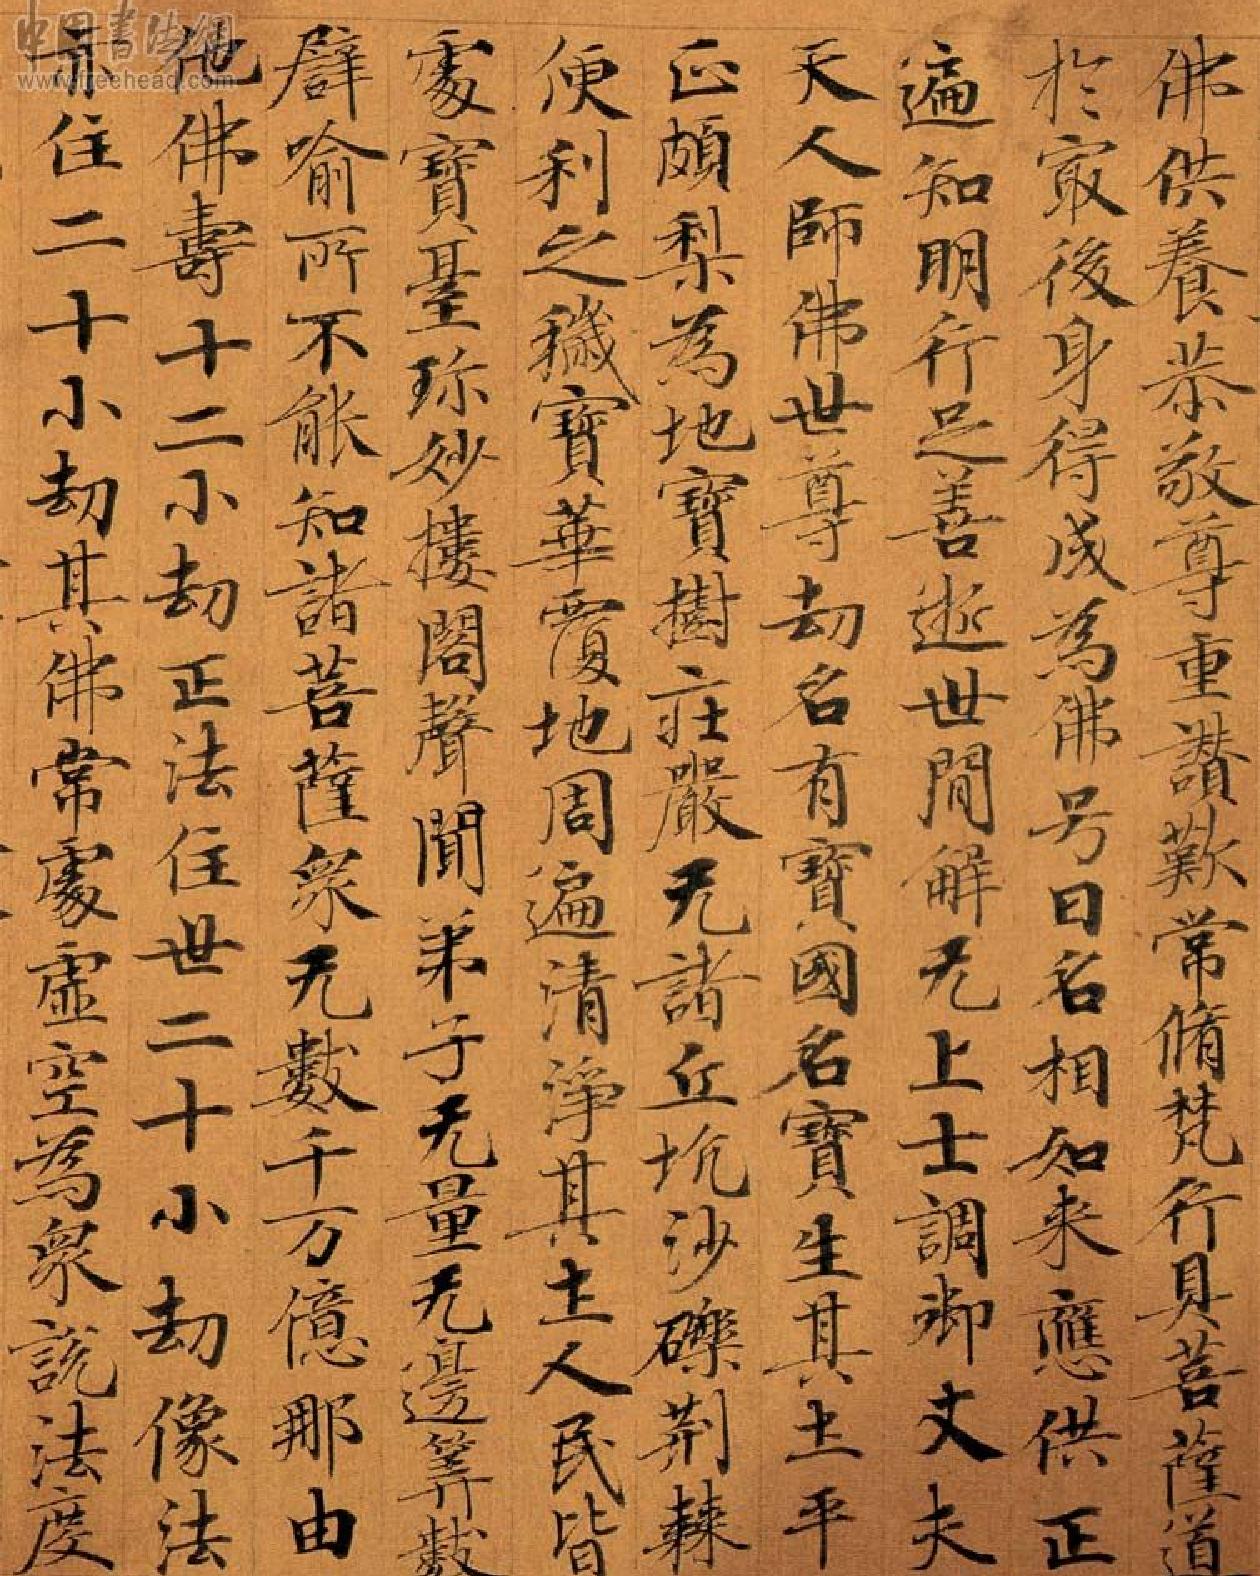 佛供養恭敬尊重讃歎常脩梵行具菩薩道
於冣後身得成為佛号曰名相如来應供正
遍知明行足善逝世間解无上士調御丈夫
天人師佛世尊劫名有寶國名寶生其土平
正頗梨為地寶樹莊嚴无諸丘坑沙礫荆棘
便利之穢寶華覆地周遍清淨其土人民皆
處寶臺珎妙樓閣聲聞弟子无量无邊筭數
譬喻所不能知諸菩薩衆无數千万億那由
他佛壽十二小劫正法住世二十小劫像法
亦住二十小劫其佛常處虛空為衆說法度
中国書法網
www.freehead.com